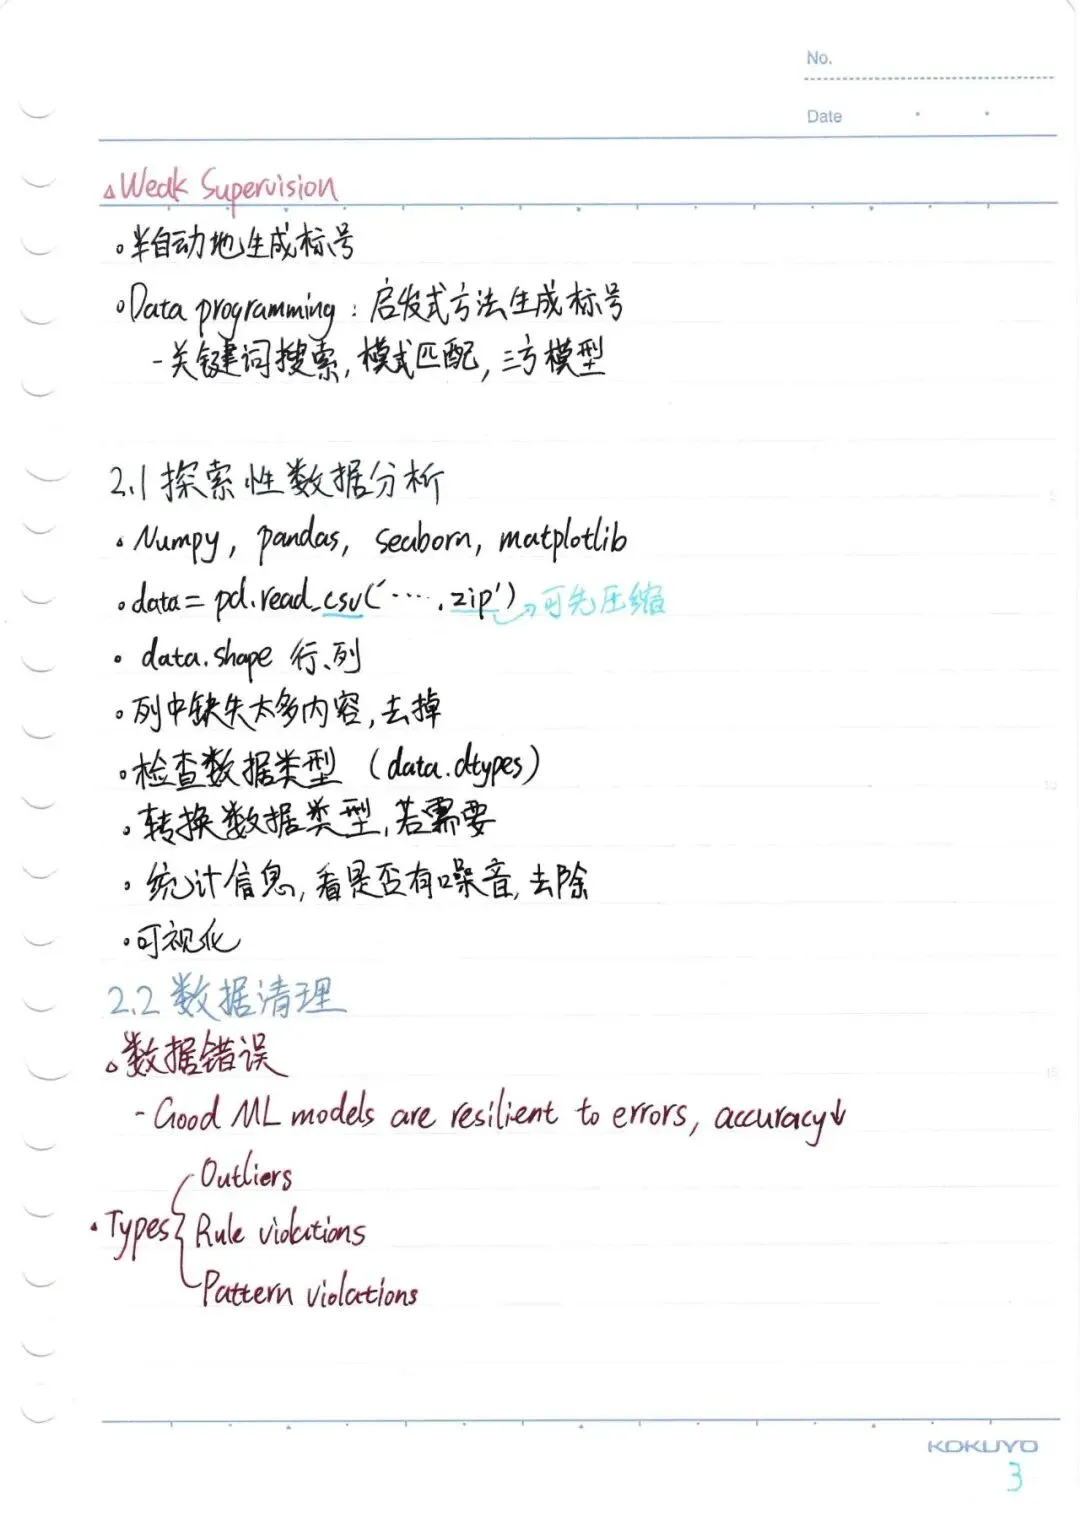 No.
Date
△Weak Supervision
。半自动地生成标号
。Data programming：启发式方法生成标号
-关键词搜索, 模式匹配, 三方模型
2.1 探索性数据分析
。Numpy, pandas, seaborn, matplotlib
。data = pd.read_csv('.... .zip') → 可先压缩
。data.shape 行、列
。列中缺失太多内容, 去掉
。检查数据类型 (data.dtypes)
。转换数据类型, 若需要
。统计信息, 看是否有噪音, 去除
。可视化
2.2 数据清理
△数据错误
- Good ML models are resilient to errors, accuracy↓
Outliers
△Types { Rule violations
Pattern violations
KOKUYO
3